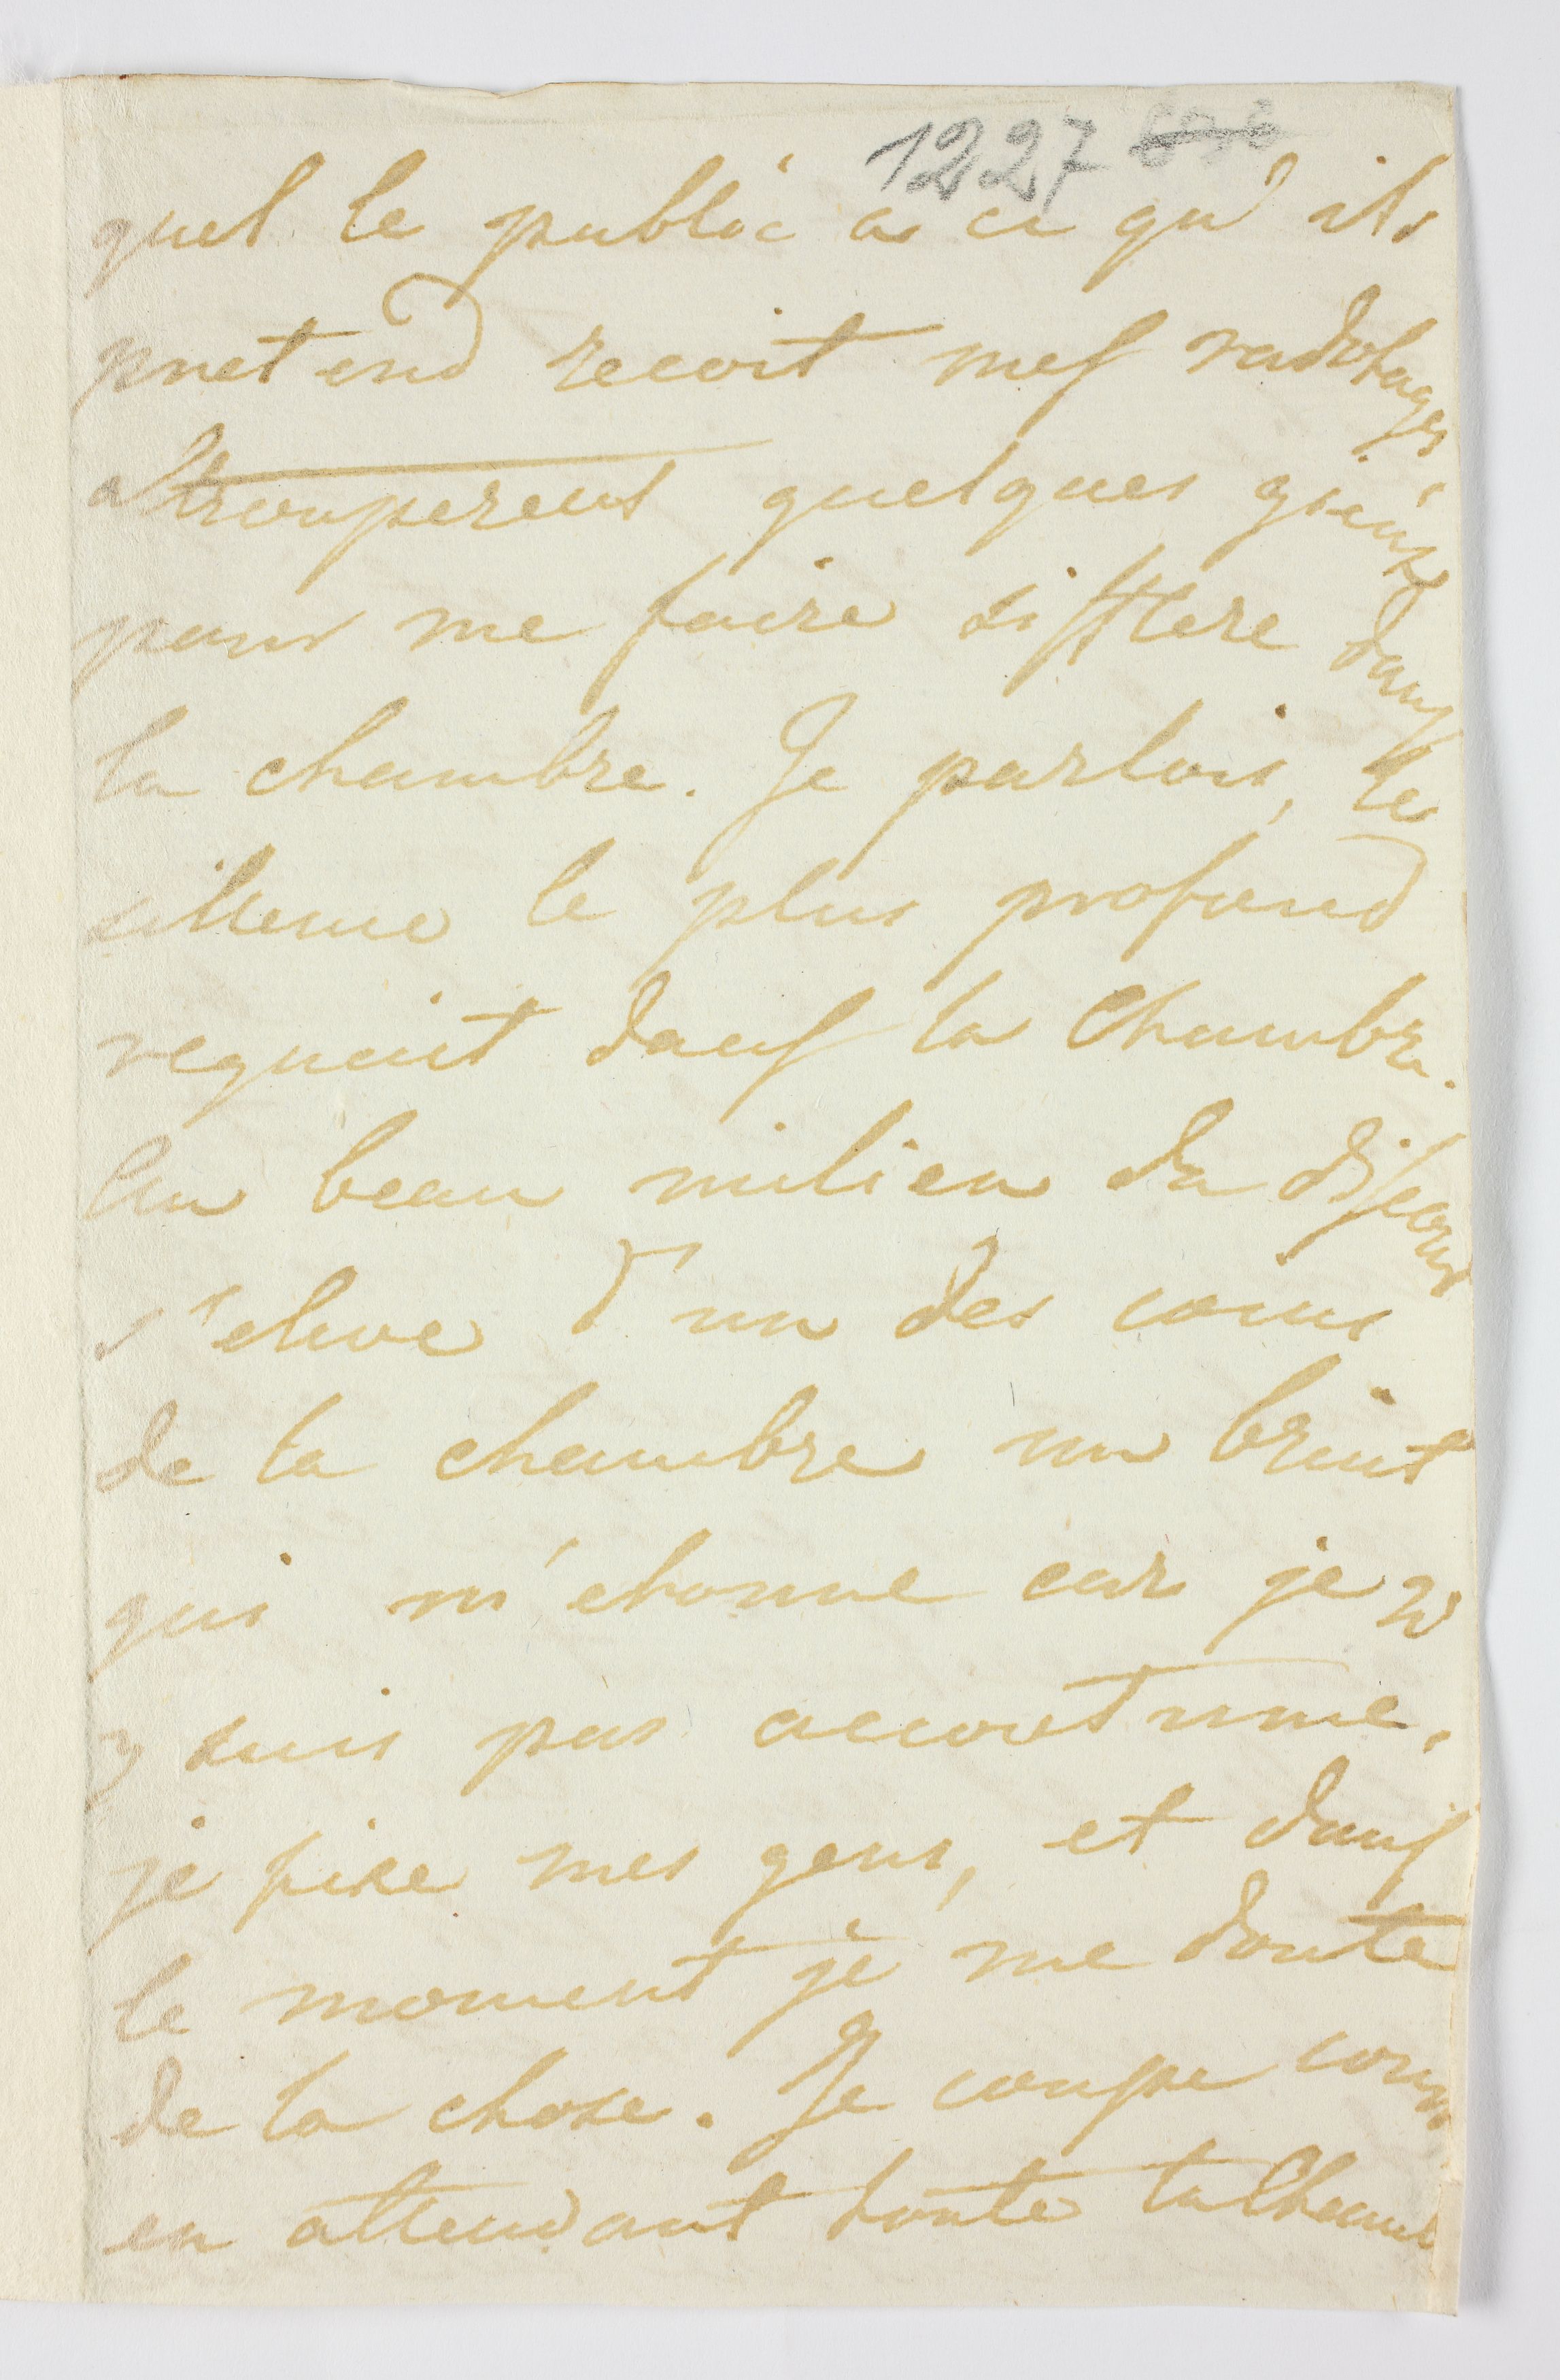 1227
quel le public a ce qu'ils
pretend recoit mes radotages
attrouperent quelques
pour me faire sifflere dans
la chambre. Je parlois, le
silence le plus profond
regnait dans la Chambre.
Au beau milieu du discours
s'eleve d'un des coins
de la chambre un bruit
qui m'etonne car je n'
y suis pas accoutume,
je fixe mes gens, et dans
le moment je me doute
de la chose. Je coupe court
en attendant toute la Chamb